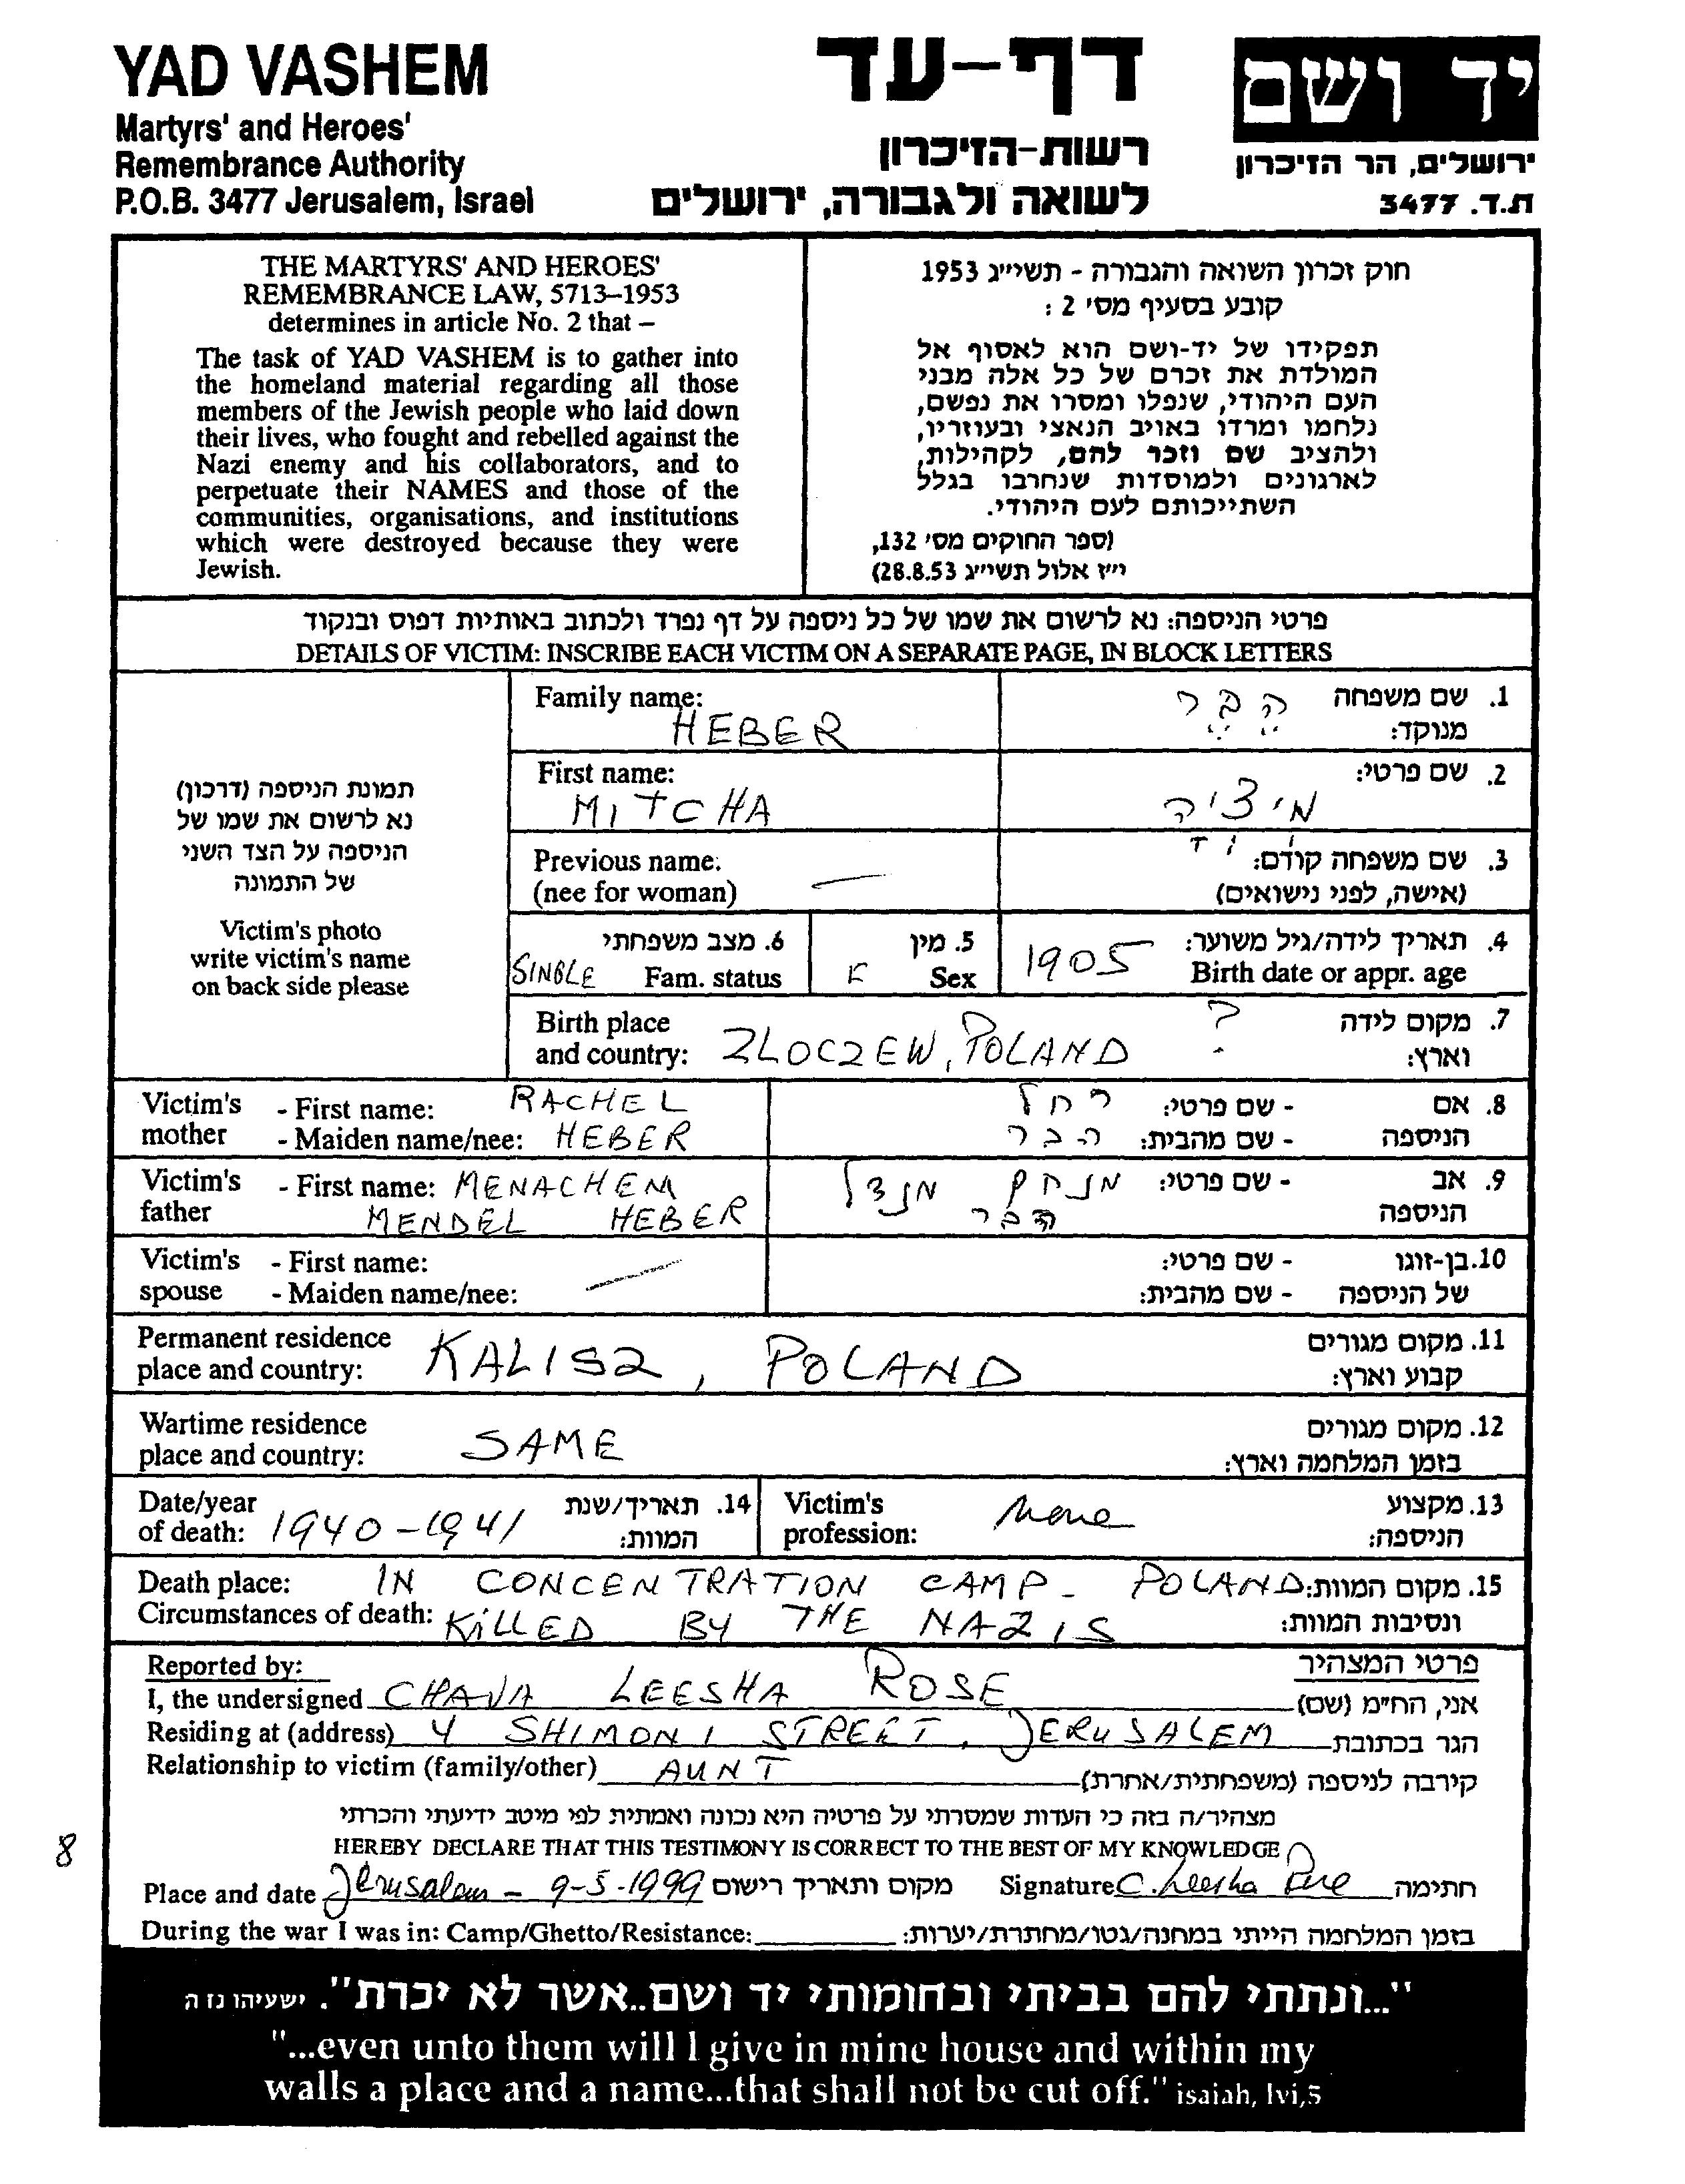 YAD VASHEM
Martyrs' and Heroes'
Remembrance Authority
P.O.B. 3477 Jerusalem, Israel
דף-עד
רשות-הזיכרון
לשואה ולגבורה, ירושלים
יד ושם
ירושלים, הר הזיכרון
ת.ד. 3477
THE MARTYRS' AND HEROES'
REMEMBRANCE LAW, 5713–1953
determines in article No. 2 that –
The task of YAD VASHEM is to gather into
the homeland material regarding all those
members of the Jewish people who laid down
their lives, who fought and rebelled against the
Nazi enemy and his collaborators, and to
perpetuate their NAMES and those of the
communities, organisations, and institutions
which were destroyed because they were
Jewish.
חוק זכרון השואה והגבורה - תשי״ג 1953
קובע בסעיף מס׳ 2 :
תפקידו של יד-ושם הוא לאסוף אל
המולדת את זכרם של כל אלה מבני
העם היהודי, שנפלו ומסרו את נפשם,
נלחמו ומרדו באויב הנאצי ובעוזריו,
ולהציב שם וזכר להם, לקהילות,
לארגונים ולמוסדות שנחרבו בגלל
השתייכותם לעם היהודי.
(ספר החוקים מס׳ 132,
י״ז אלול תשי״ג 28.8.53)
פרטי הניספה: נא לרשום את שמו של כל ניספה על דף נפרד ולכתוב באותיות דפוס ובנקוד
DETAILS OF VICTIM: INSCRIBE EACH VICTIM ON A SEPARATE PAGE, IN BLOCK LETTERS
תמונת הניספה (דרכון)
נא לרשום את שמו של
הניספה על הצד השני
של התמונה
Victim's photo
write victim's name
on back side please
Family name:
HEBER
הבר
1. שם משפחה
מנוקד:
First name:
MITCHA
מיציה
2. שם פרטי:
Previous name.
(nee for woman) —
3. שם משפחה קודם:
(אישה, לפני נישואים)
6. מצב משפחתי
SINGLE Fam. status
5. מין
F Sex
1905
4. תאריך לידה/גיל משוער:
Birth date or appr. age
Birth place
and country: ZLOCZEW, POLAND
?
7. מקום לידה
וארץ:
Victim's mother - First name: RACHEL
- Maiden name/nee: HEBER
8. אם הניספה - שם פרטי: רחל
- שם מהבית: הבר
Victim's father - First name: MENACHEM
MENDEL HEBER
9. אב הניספה - שם פרטי: מנחם מנדל
הבר
Victim's spouse - First name:
- Maiden name/nee: —
10. בן-זוגו - שם פרטי:
של הניספה - שם מהבית:
Permanent residence
place and country: KALISZ, POLAND
11. מקום מגורים
קבוע וארץ:
Wartime residence
place and country: SAME
12. מקום מגורים
בזמן המלחמה וארץ:
Date/year
of death: 1940-1941
14. תאריך/שנת
המוות:
Victim's
profession: None
13. מקצוע
הניספה:
Death place: IN CONCENTRATION CAMP - POLAND
Circumstances of death: KILLED BY THE NAZIS
15. מקום המוות:
ונסיבות המוות:
Reported by:
פרטי המצהיר
I, the undersigned CHAVA LEESHA ROSE אני, הח״מ (שם)
Residing at (address) 4 SHIMONI STREET, JERUSALEM הגר בכתובת
Relationship to victim (family/other) AUNT קירבה לניספה (משפחתית/אחרת)
מצהיר/ה בזה כי העדות שמסרתי על פרטיה היא נכונה ואמתית לפי מיטב ידיעתי והכרתי
HEREBY DECLARE THAT THIS TESTIMONY IS CORRECT TO THE BEST OF MY KNOWLEDGE
8
Place and date Jerusalem - 9-5-1999 מקום ותאריך רישום Signature C. Leesha Rose חתימה
During the war I was in: Camp/Ghetto/Resistance: בזמן המלחמה הייתי במחנה/גטו/מחתרת/יערות:
"...ונתתי להם בביתי ובחומותי יד ושם..אשר לא יכרת". ישעיהו נז ה
"...even unto them will I give in mine house and within my
walls a place and a name...that shall not be cut off." isaiah, lvi,5